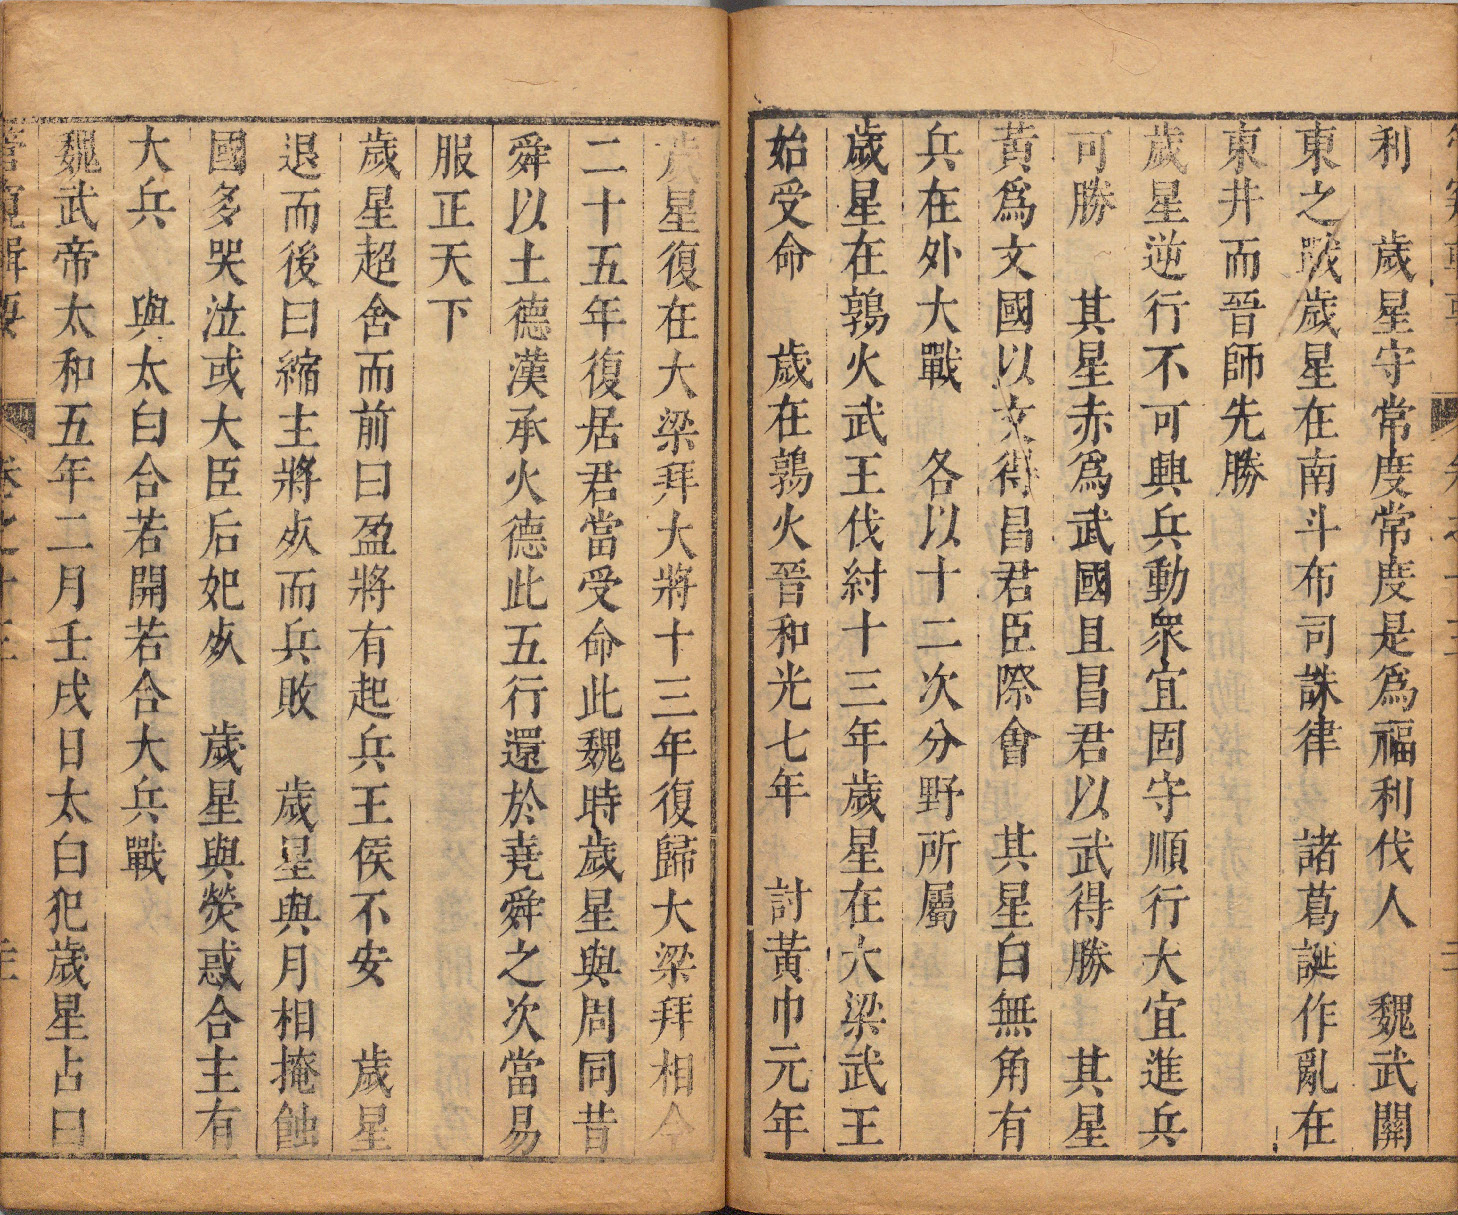 利　歲星守常度常度是爲福利伐人　魏武關
東之戰歲星在南斗布司誅律　諸葛誕作亂在
東井而晉師先勝
歲星逆行不可興兵動衆宜固守順行大宜進兵
可勝　其星赤爲武國且昌君以武得勝　其星
黃爲文國以文得昌君臣際會　其星白無角有
兵在外大戰　各以十二次分野所屬
歲星在鶉火武王伐紂十三年歲星在大梁武王
始受命　歲在鶉火晉和光七年　討黃巾元年
歲星復在大梁拜大將十三年復歸大梁拜相今
二十五年復居君當受命此魏時歲星與周同昔
舜以土德漢承火德此五行還於堯舜之次當易
服正天下
歲星超舍而前曰盈將有起兵王侯不安　歲星
退而後曰縮主將灰而兵敗　歲星與月相掩蝕
國多哭泣或大臣后妃灰　歲星與熒惑合主有
大兵　與太白合若開若合大兵戰
魏武帝太和五年二月壬戌日太白犯歲星占曰
管窺輯要　卷之十三